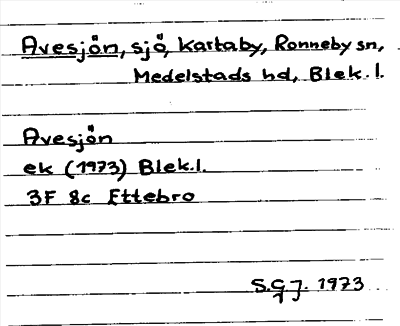 Avesjön, sjö, Kartaby, Ronneby sn,
Medelstads hd, Blek. l.
Avesjön
ek (1973) Blek.l.
3F 8c Ettebro
S.G.J. 1973